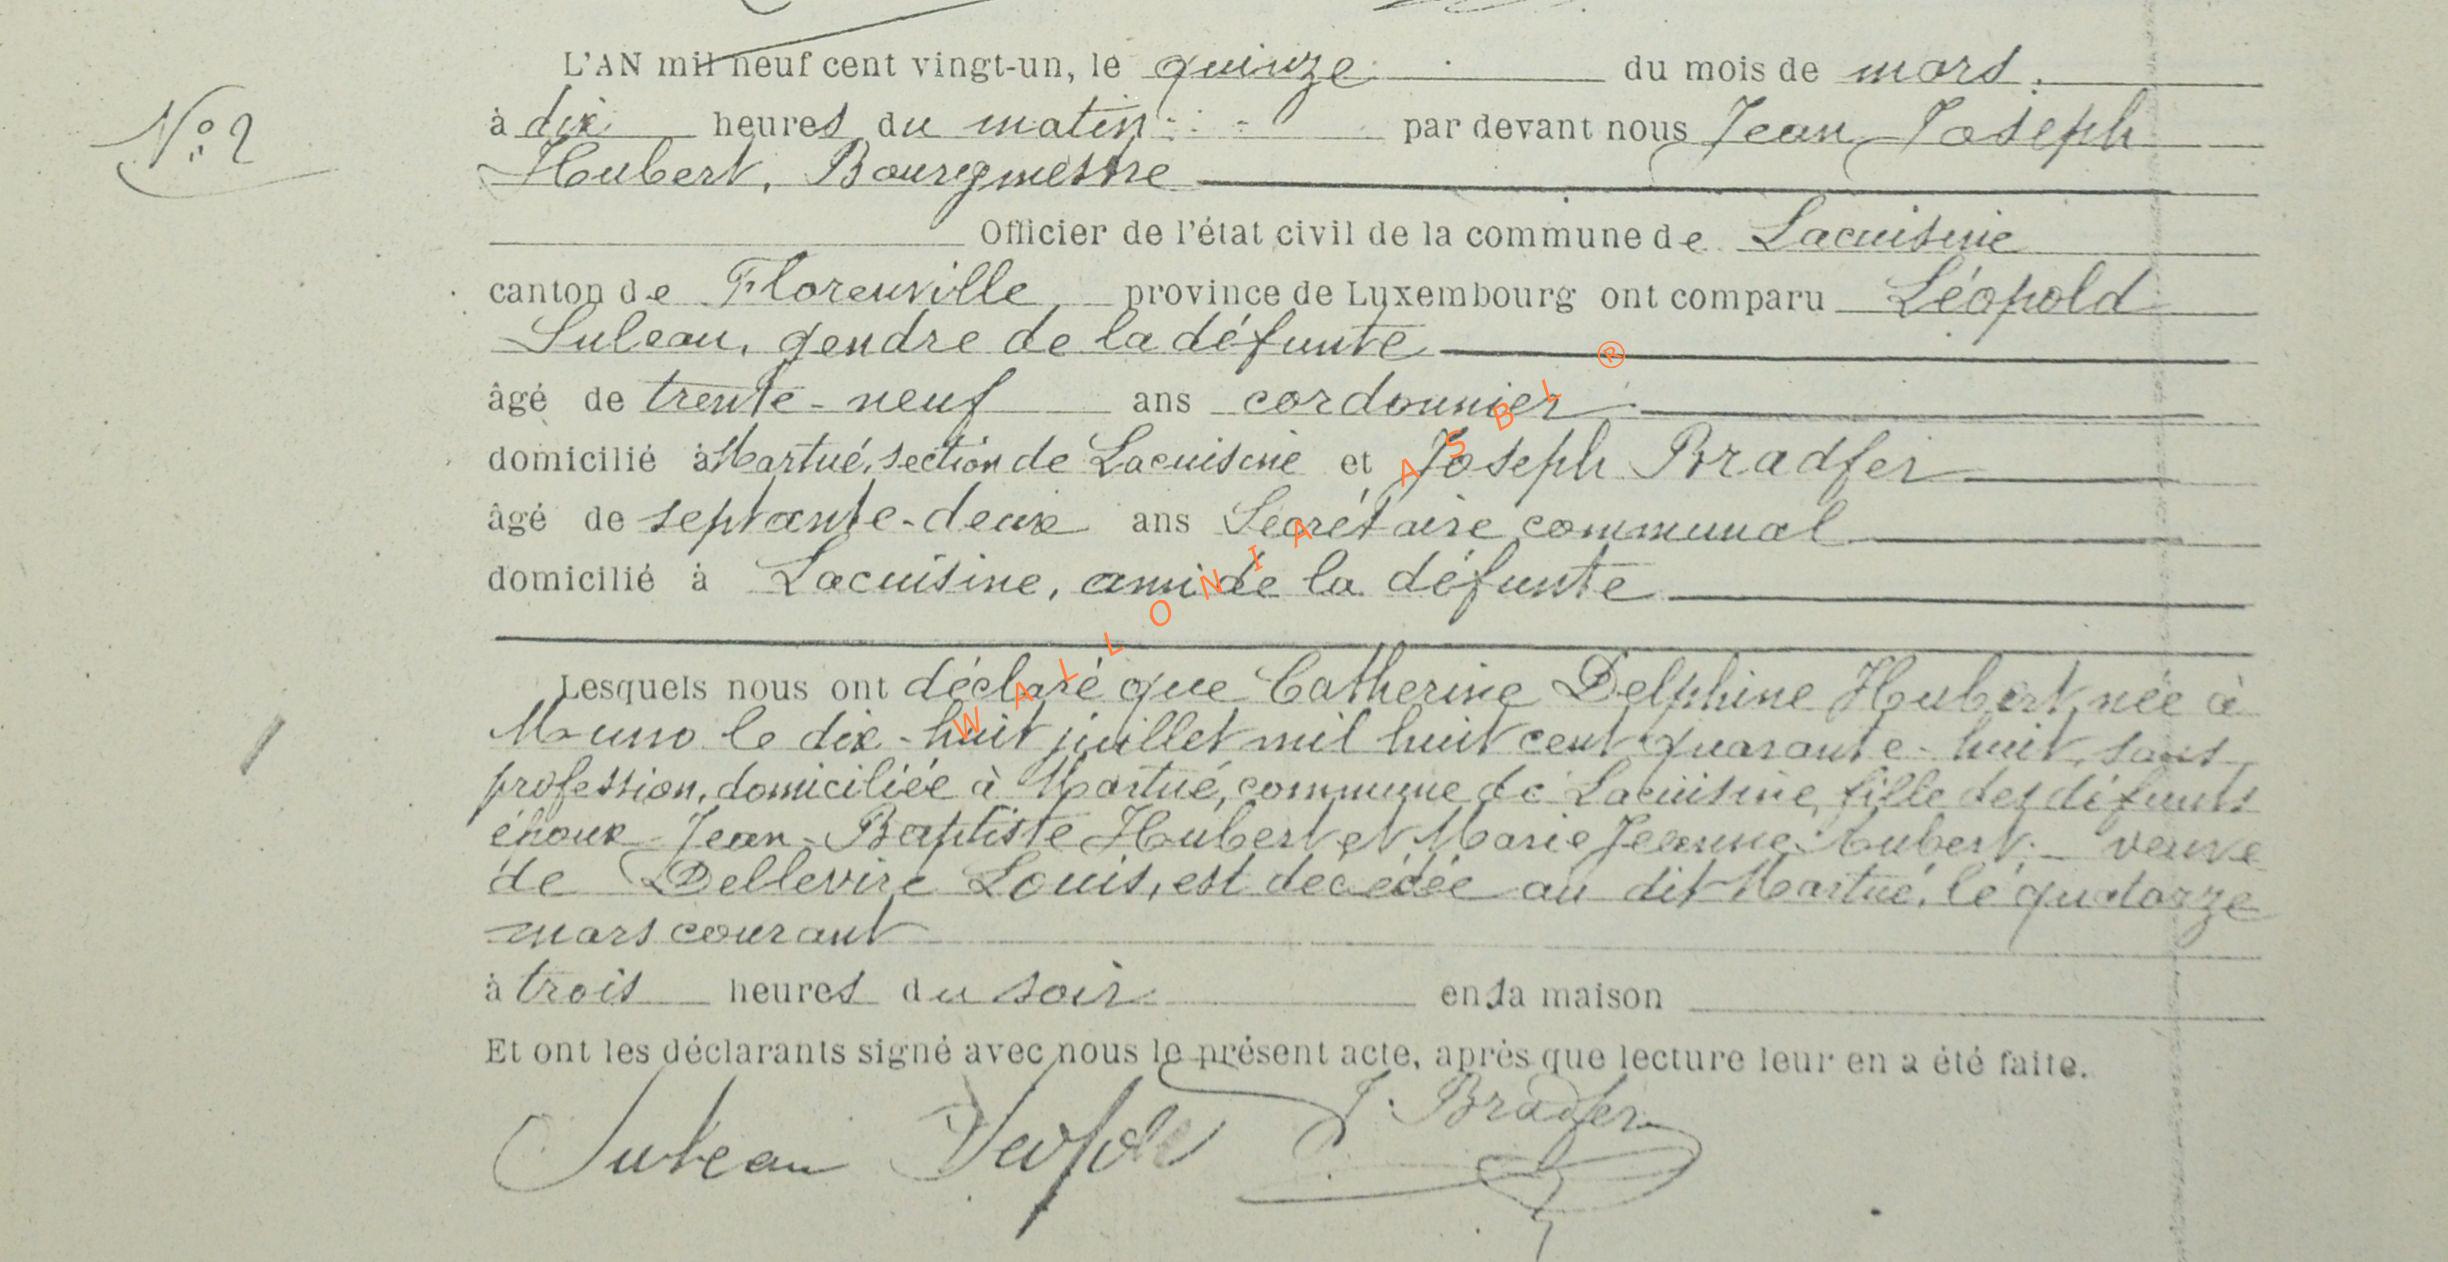 L'AN mil neuf cent vingt-un, le quinze du mois de mars.
N° 2
à dix heures du matin par devant nous Jean Joseph
Hubert, Bourgmestre
Officier de l'état civil de la commune de Lacuisine
canton de Florenville province de Luxembourg ont comparu Léopold
Suleau, gendre de la défunte
âgé de trente-neuf ans cordonnier
domicilié à Martué, section de Lacuisine et Joseph Bradfer
âgé de septante-deux ans Secrétaire communal
domicilié à Lacuisine, ami de la défunte
Lesquels nous ont déclaré que Catherine Delphine Hubert, née à
Muno le dix-huit juillet mil huit cent quarante-huit, sans
profession, domiciliée à Martué, commune de Lacuisine, fille des défunts
époux Jean-Baptiste Hubert et Marie Jeanne Hubert. veuve
de Dellevire Louis, est décédée au dit Martué, le quatorze
mars courant
à trois heures du soir en sa maison
Et ont les déclarants signé avec nous le présent acte, après que lecture leur en a été faite.
Suleau Léopold J. Bradfer
WALLONIA ASBL ®